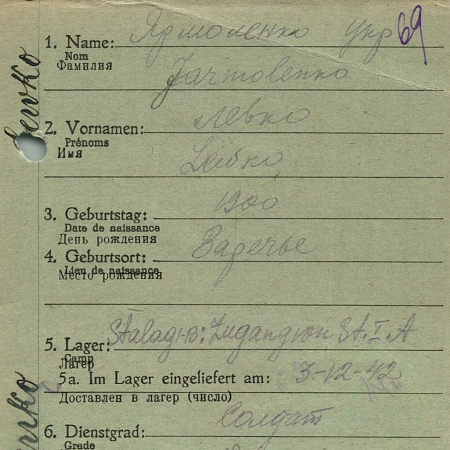 1. Name: Ярмоленко укр 69
Nom
Фамилия
Jarmolenko
2. Vornamen: Левко
Prénoms
Имя
Lewko
3. Geburtstag: 1900
Date de naissance
День рождения
4. Geburtsort: Заречье
Lieu de naissance
Место рождения
5. Lager: Stalag St. I A
Camp
Лагерь
5a. Im Lager eingeliefert am: 3-12-42
Доставлен в лагер (число)
6. Dienstgrad: Солдат
Grade